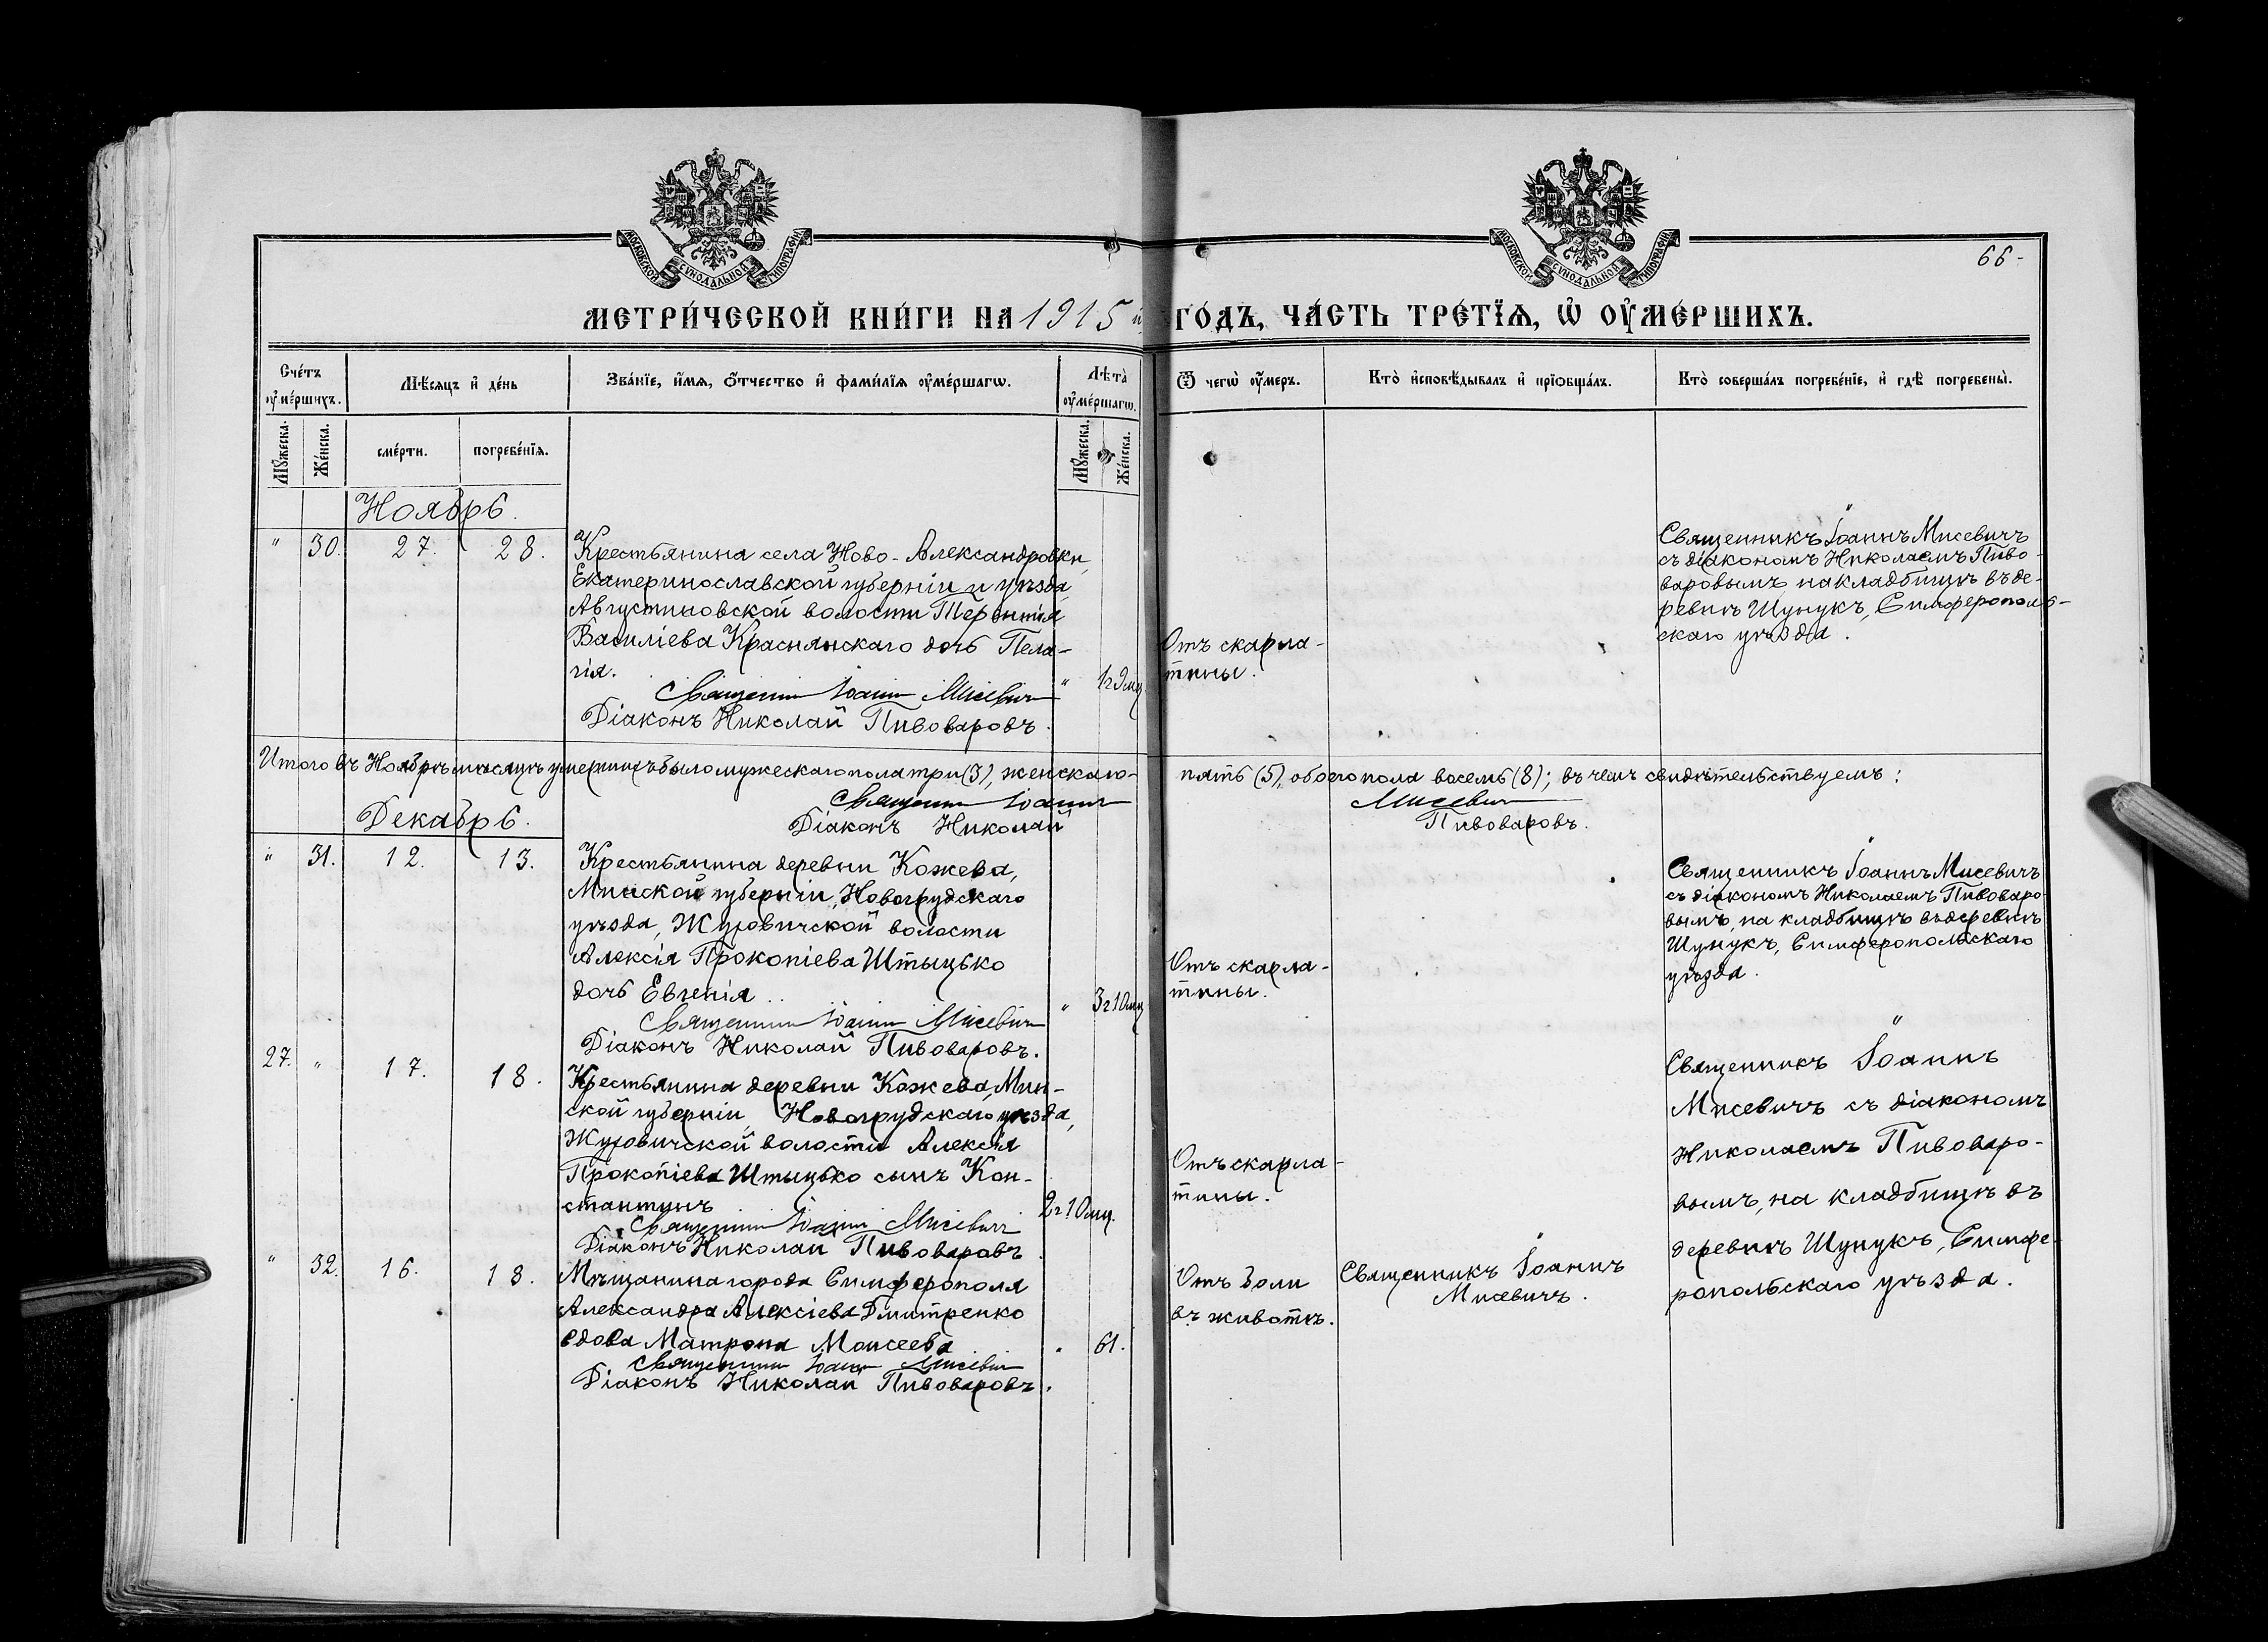 МОСКОВСКОЙ СѴНОДАЛЬНОЙ ТИПОГРАФІИ
МОСКОВСКОЙ СѴНОДАЛЬНОЙ ТИПОГРАФІИ
66-
МЕТРИ́ЧЕСКОЙ КНИ́ГИ НА 1915 й ГО́ДЪ, ЧА́СТЬ ТРЕ́ТЇѦ, Ѡ҆ ОУ҆МЕ́РШИХЪ.
Сче́тъ оу҆ме́ршихъ.
Мѣ́сяцъ и҆ де́нь
Зва́нїе, и҆́мя, ѻ҆́тчество и҆ фами́лїя оу҆ме́ршагѡ.
Лѣ́та оу҆ме́ршагѡ.
Ѿ чегѡ̀ оу҆́меръ.
Кто̀ и҆сповѣ́дывалъ и҆ прїѡбща́лъ.
Кто̀ соверша́лъ погребе́нїе, и҆ гдѣ̀ погребены̀.
Мꙋ́жеска.
Же́нска.
сме́рти.
погребе́нїя.
Мꙋ́жеска.
Же́нска.
Ноябрь.
" 30. 27. 28.
Крестьянина села Ново-Александровки,
Екатеринославской губерніи и уѣзда,
Августиновской волости Терентія
Василіева Краснянскаго дочь Пела-
гія.
Священник Іоанн Мисевич
Діаконъ Николай Пивоваровъ.
"
Отъ скарла-
тины.
"
Священникъ Іоаннъ Мисевичъ
съ діакономъ Николаемъ Пиво-
варовымъ, на кладбищѣ въ де-
ревнѣ Шунукъ, Симферополь-
скаго уѣзда.
Итого въ Ноябрѣ мѣсяцѣ умершихъ было мужескаго пола три (3), женскаго-
пять (5), обоего пола восемь (8); въ чемъ свидѣтельствуемъ:
Священник Іоанн Мисевич
Діаконъ Николай Пивоваровъ.
Декабрь.
" 31. 12. 13.
Крестьянина деревни Кожева,
Минской губерніи, Новогрудскаго
уѣзда, Жуховичской волости
Алексія Прокопіева Штыцько
дочь Евгенія.
Священник Іоанн Мисевич
Діаконъ Николай Пивоваровъ.
" 3 г 10 мц
Отъ скарла-
тины.
"
Священникъ Іоаннъ Мисевичъ
съ діакономъ Николаемъ Пивоваро-
вымъ, на кладбищѣ въ деревнѣ
Шунукъ, Симферопольскаго
уѣзда.
27. " 17. 18.
Крестьянина деревни Кожева, Мин-
ской губерніи, Новогрудскаго уѣзда,
Жуховичской волости Алексія
Прокопіева Штыцько сынъ Кон-
стантинъ
Священник Іоанн Мисевич
Діаконъ Николай Пивоваровъ
2 г 10 мц.
Отъ скарла-
тины.
"
Священникъ Іоаннъ
Мисевичъ съ діакономъ
Николаемъ Пивоваро-
вымъ, на кладбищѣ въ
деревнѣ Шунукъ, Симфе-
ропольскаго уѣзда.
" 32. 16. 18.
Мѣщанина города Симферополя
Александра Алексіева Дмитренко
вдова Матрона Моисеева
Священник Іоанн Мисевич
Діаконъ Николай Пивоваровъ.
" 61.
Отъ боли
въ животѣ.
Священникъ Іоаннъ
Мисевичъ.